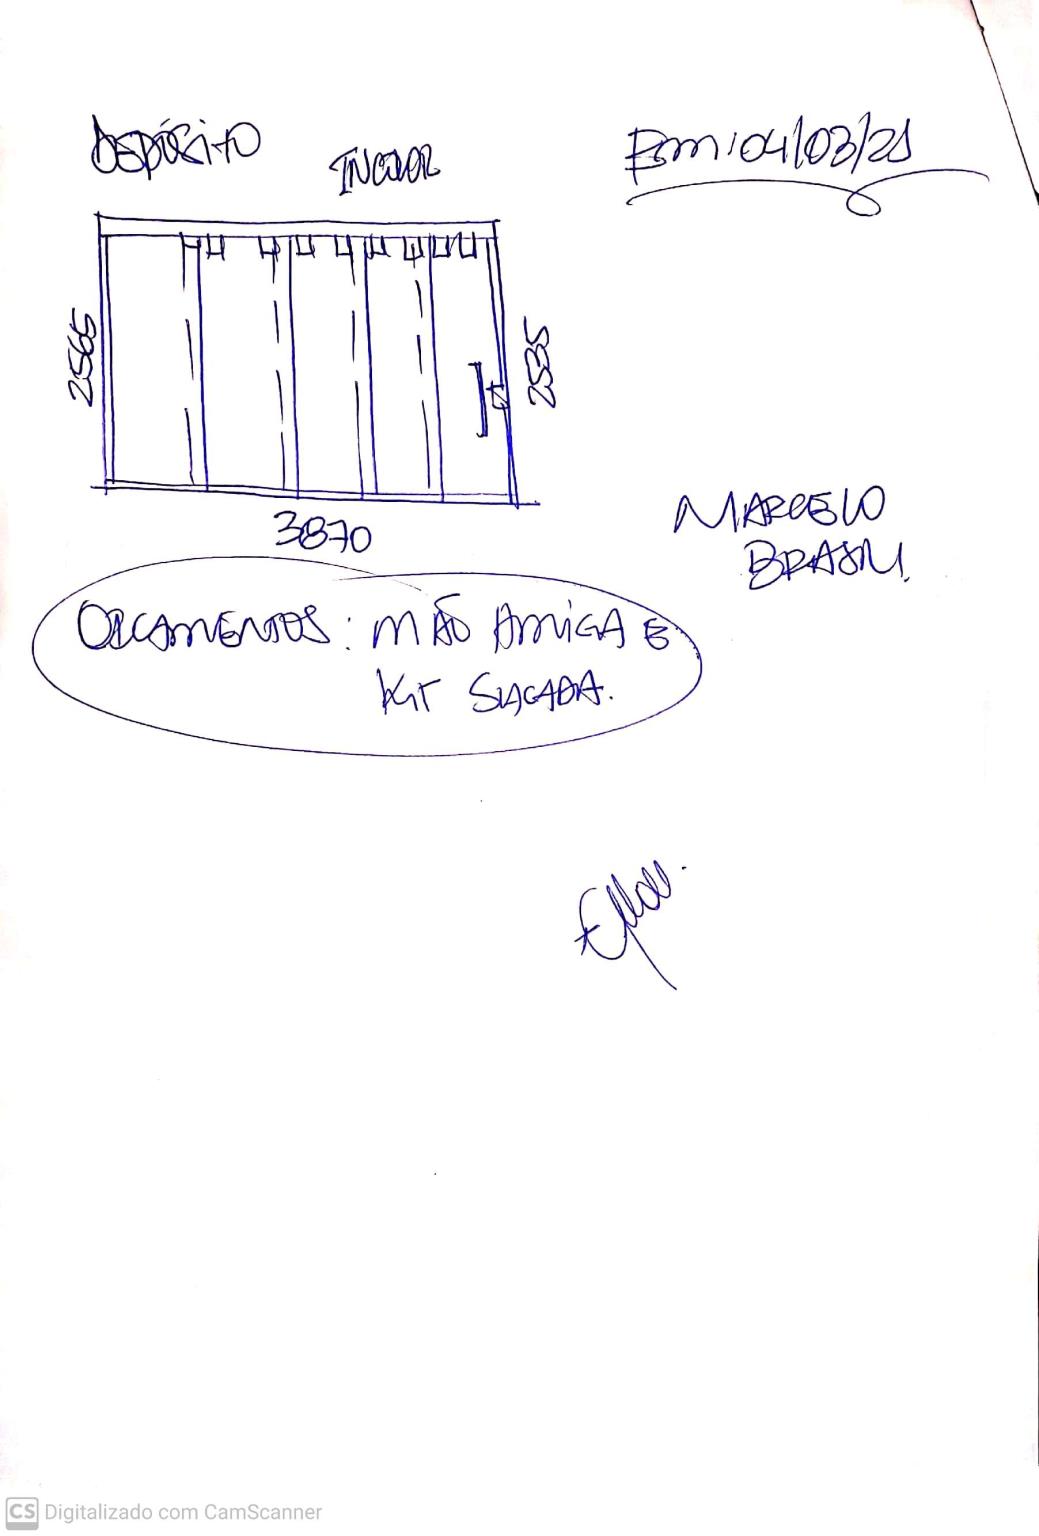 DEPÓSITO
INCOLOR
Em: 04/03/21
2565
2535
3870
MARCELO
BRASIL.
ORÇAMENTOS: MÃO AMIGA E
KIT SACADA.
CS Digitalizado com CamScanner